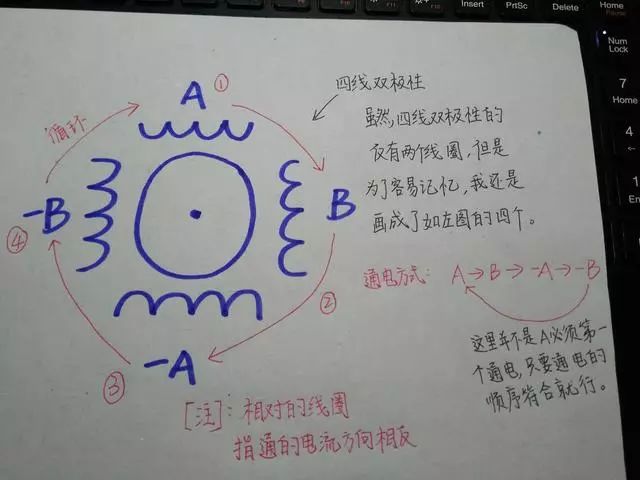 Insert
PrtSc
Delete
Home
Pause
Num
Lock
7
Home
4
←
1
En
A
①
循环
B
②
-A
③
-B
④
四线双极性
虽然,四线双极性的
仅有两个线圈,但是
为了容易记忆,我还是
画成了如左图的四个。
通电方式: A→B→-A→-B
这里并不是A必须第一
个通电,只要通电的
顺序符合就行。
[注]:相对的线圈
指通的电流方向相反